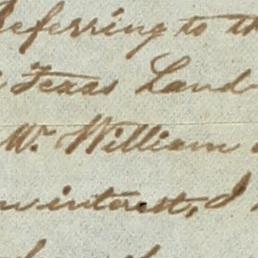 Referring to th
Texas Land
Mr. William
interest, I